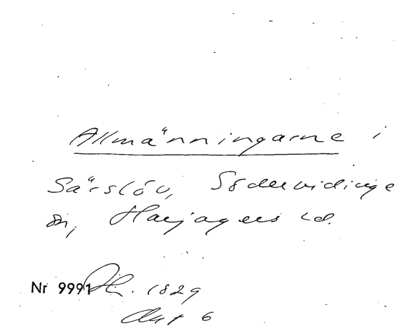 Allmänningarne i
Särslöv, Södervidinge
sn, Harjagers hd.
Nr 9991 1829
6